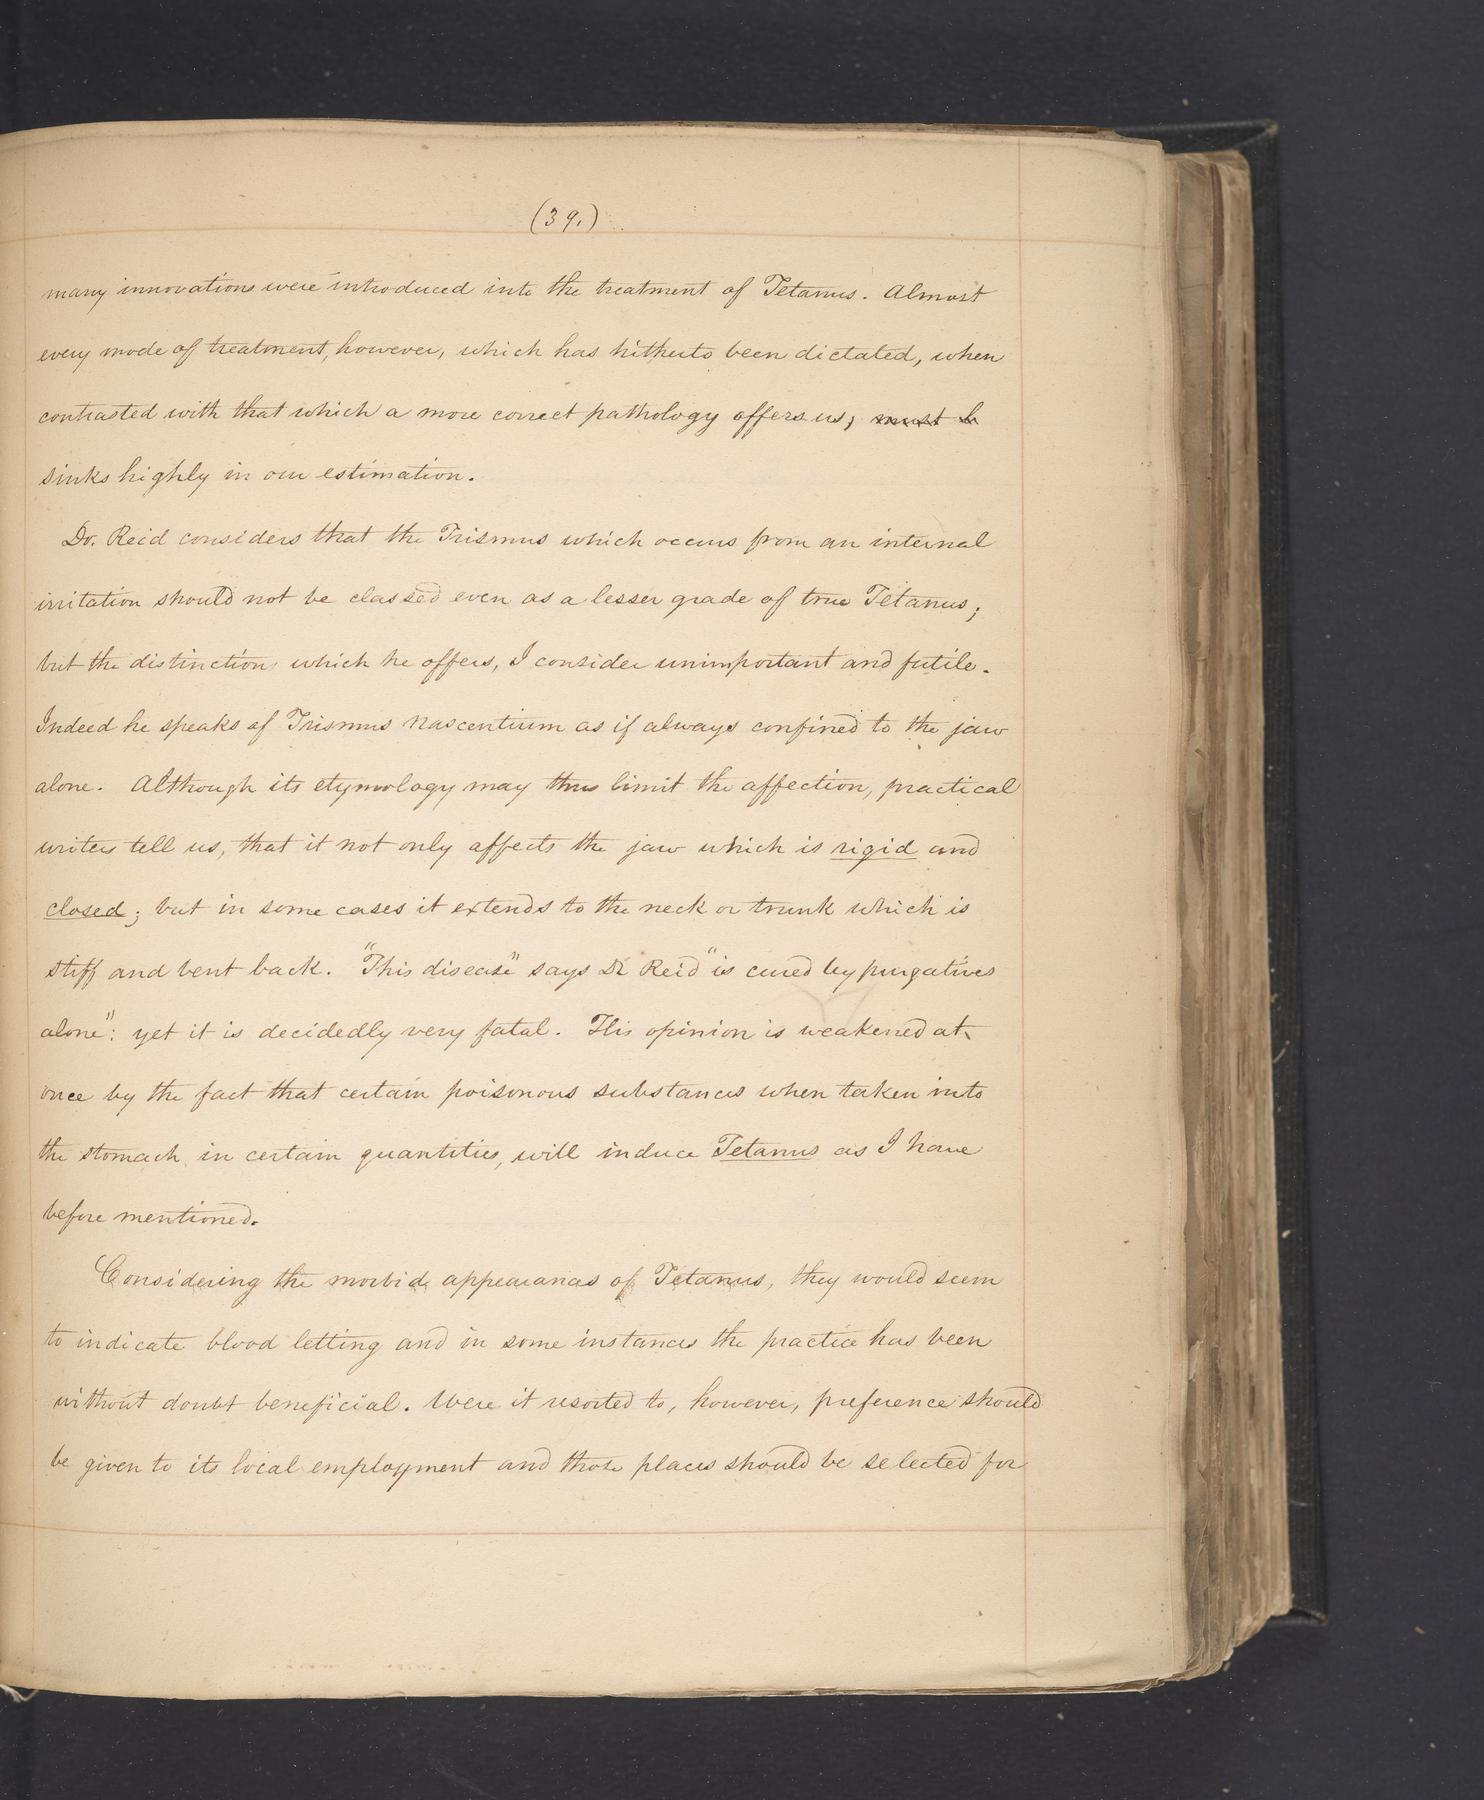 (39.)
many innovations were introduced into the treatment of Tetanus. Almost
every mode of treatment, however, which has hitherto been dictated, when
contrasted with that which a more correct pathology offers us, must b
sinks highly in our estimation.
Dr. Reid considers that the Trismus which occurs from an internal
irritation should not be classed even as a lesser grade of true Tetanus;
but the distinction which he offers, I consider unimportant and futile.
Indeed he speaks of Trismus Nascentium as if always confined to the jaw
alone. Although its etymology may thus limit the affection, practical
writers tell us, that it not only affects the jaw which is rigid and
closed; but in some cases it extends to the neck or trunk which is
stiff and bent back. "This disease" says Dr Reid "is cured by purgatives
alone": yet it is decidedly very fatal. His opinion is weakened at
once by the fact that certain poisonous substances when taken into
the stomach in certain quantities, will induce Tetanus as I have
before mentioned.
Considering the morbid appearances of Tetanus, they would seem
to indicate blood letting and in some instances the practice has been
without doubt beneficial. Were it resorted to, however, preference should
be given to its local employment and those places should be selected for